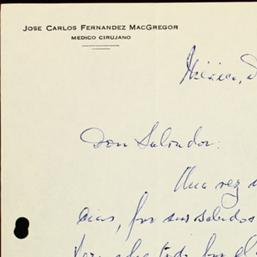 JOSE CARLOS FERNANDEZ MACGREGOR
MEDICO CIRUJANO
México, D
Don Salvador:
Una vez
dias, por sus saludos